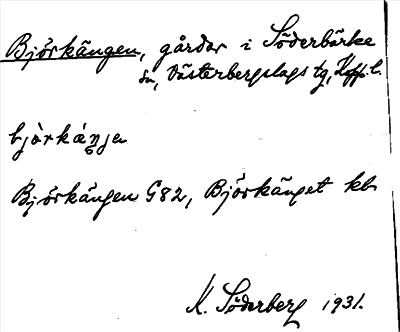 Björkängen, gårdar i Söderbärke
sn, Västerbergslags tg, Kopp. l.
bjö̀rkäŋen
Björkängen G82, Björkänget kb
K. Söderberg 1931.